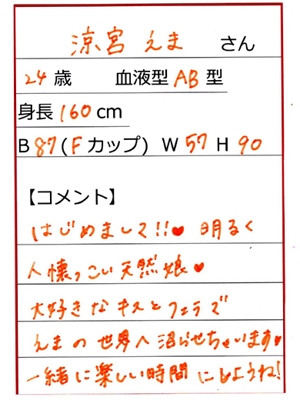 涼宮 えま さん
24歳 血液型 AB型
身長 160cm
B 87(Fカップ) W 57 H 90
【コメント】
はじめまして!!♥ 明るく
人懐っこい天然娘♥
大好きなキスとフェラで
えまの世界へ沼らせちゃいます♥
一緒に楽しい時間にしようね!